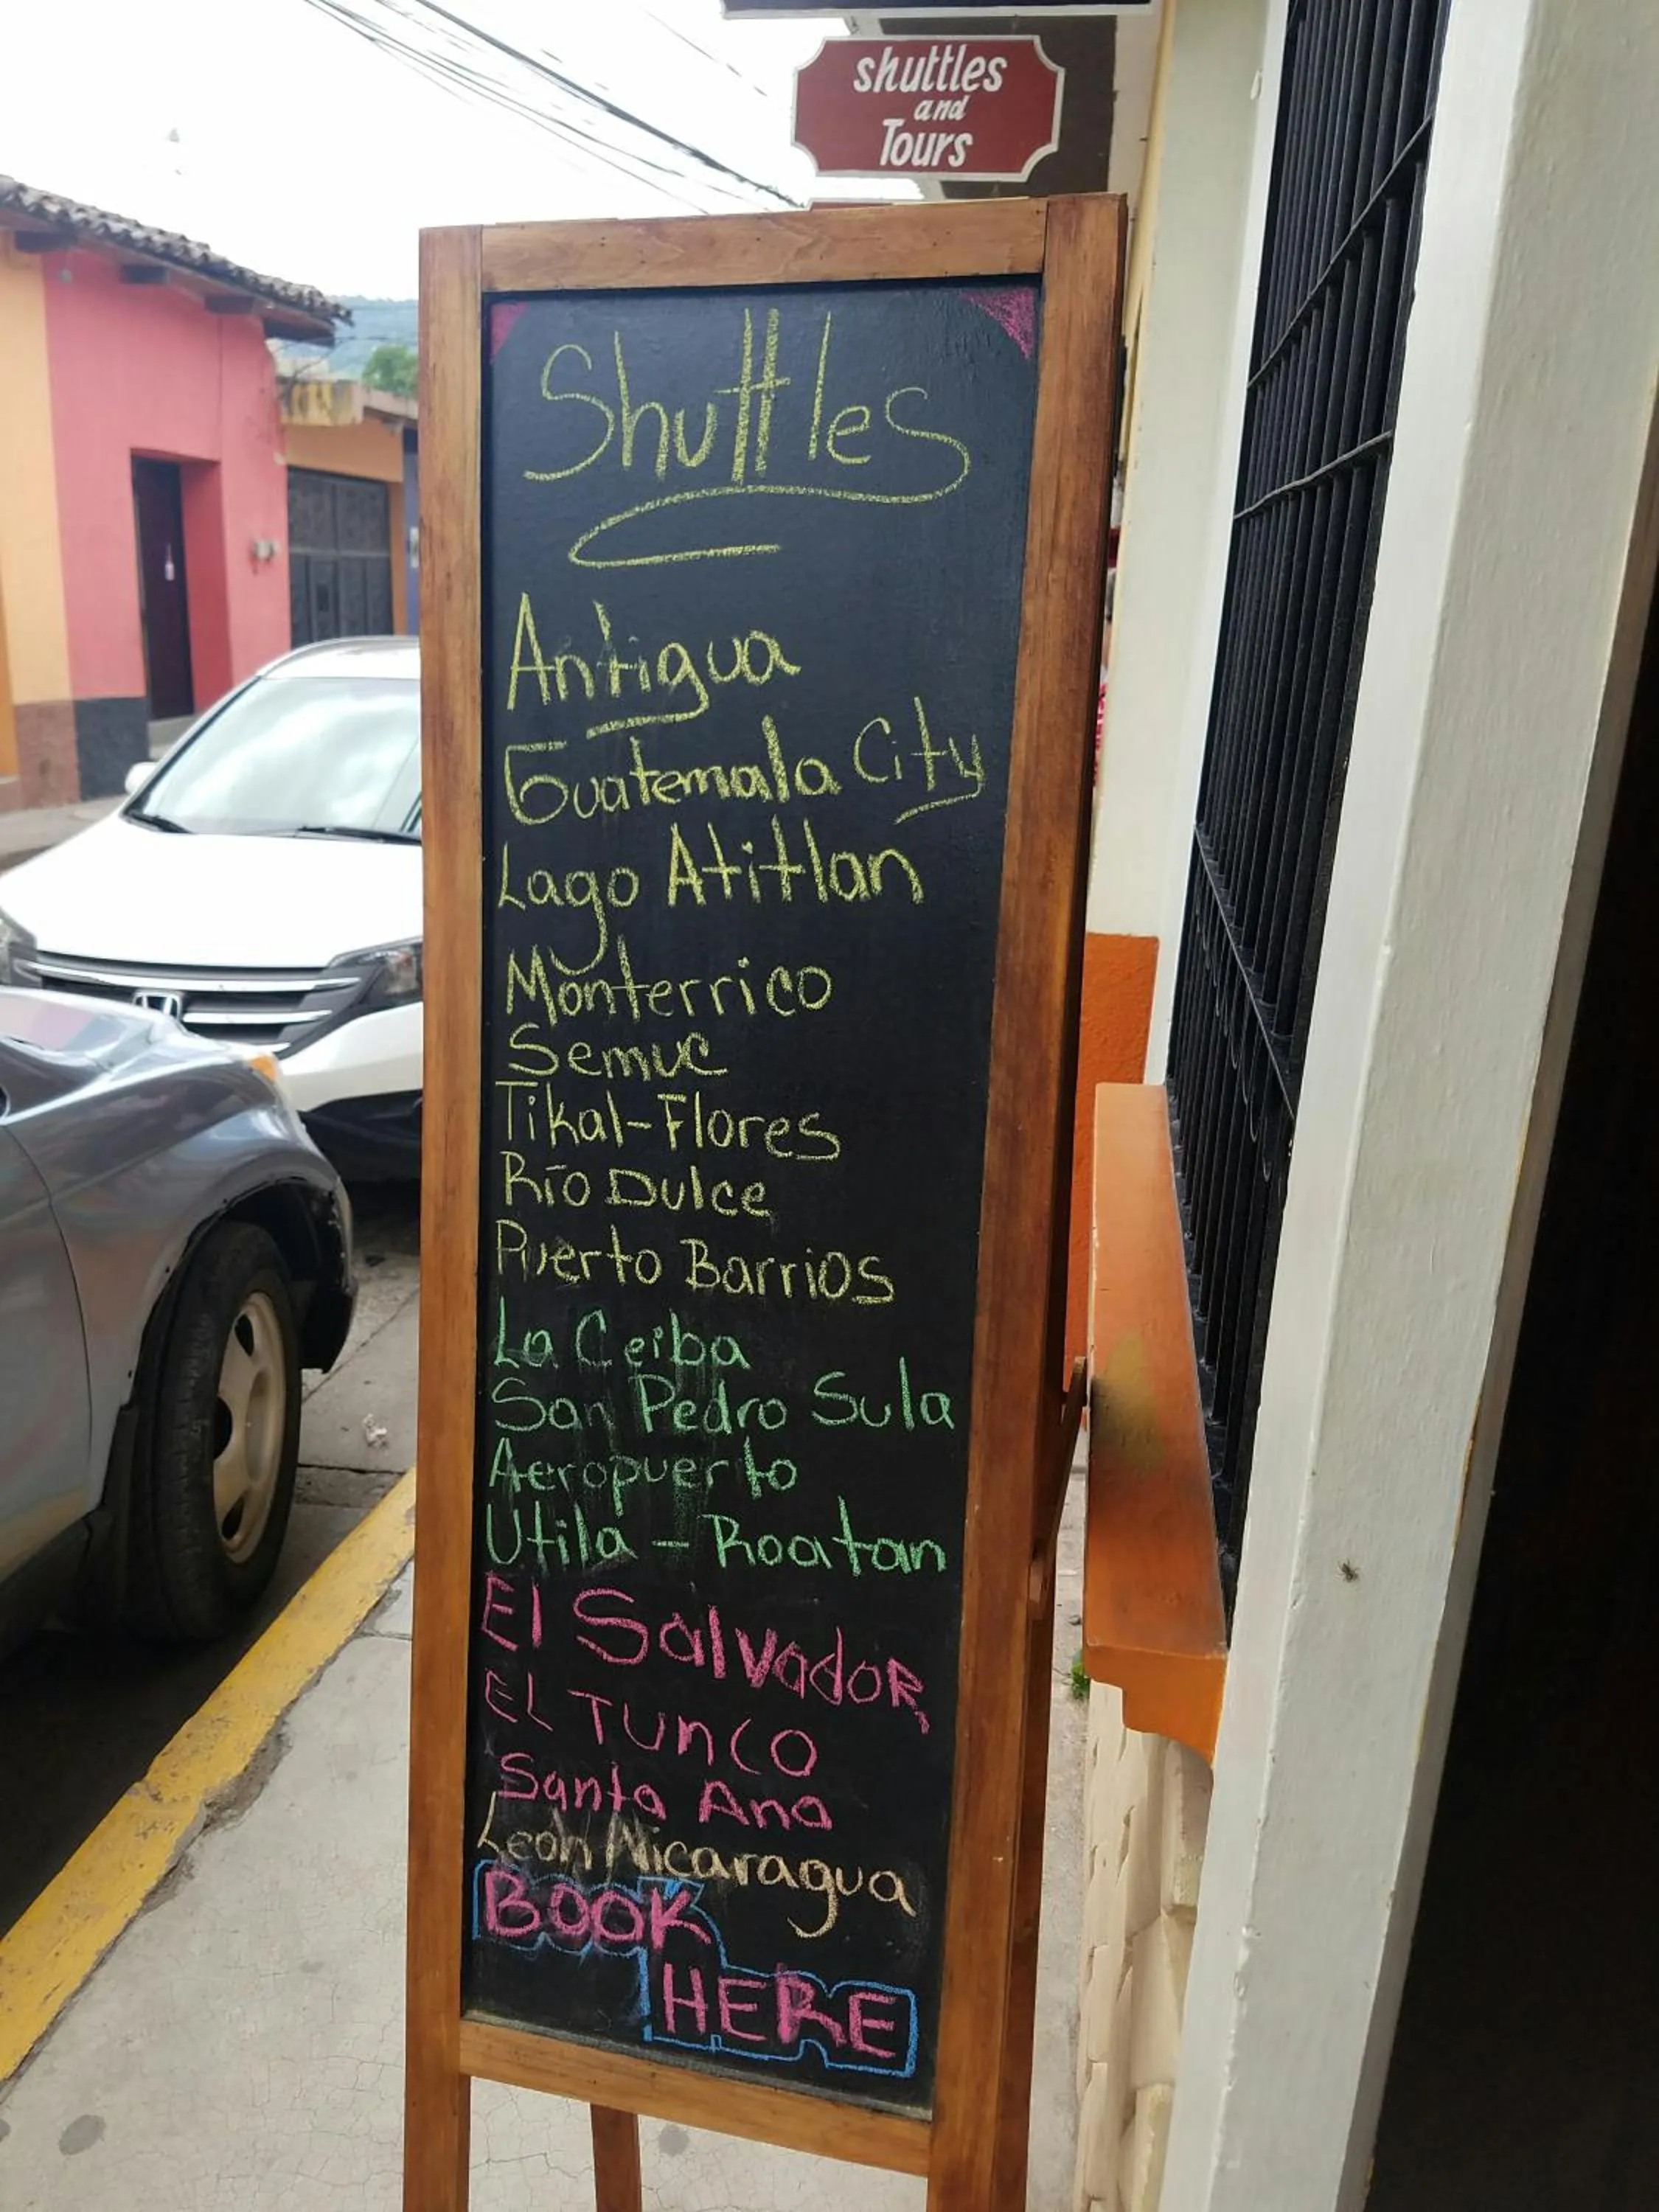 shuttles
and
Tours
Shuttles
Antigua
Guatemala City
Lago Atitlan
Monterrico
Semuc
Tikal-Flores
Río Dulce
Puerto Barrios
La Ceiba
San Pedro Sula
Aeropuerto
Utila - Roatan
El SalvadoR
EL TUnCO
Santa Ana
León Nicaragua
BOOK
HERE